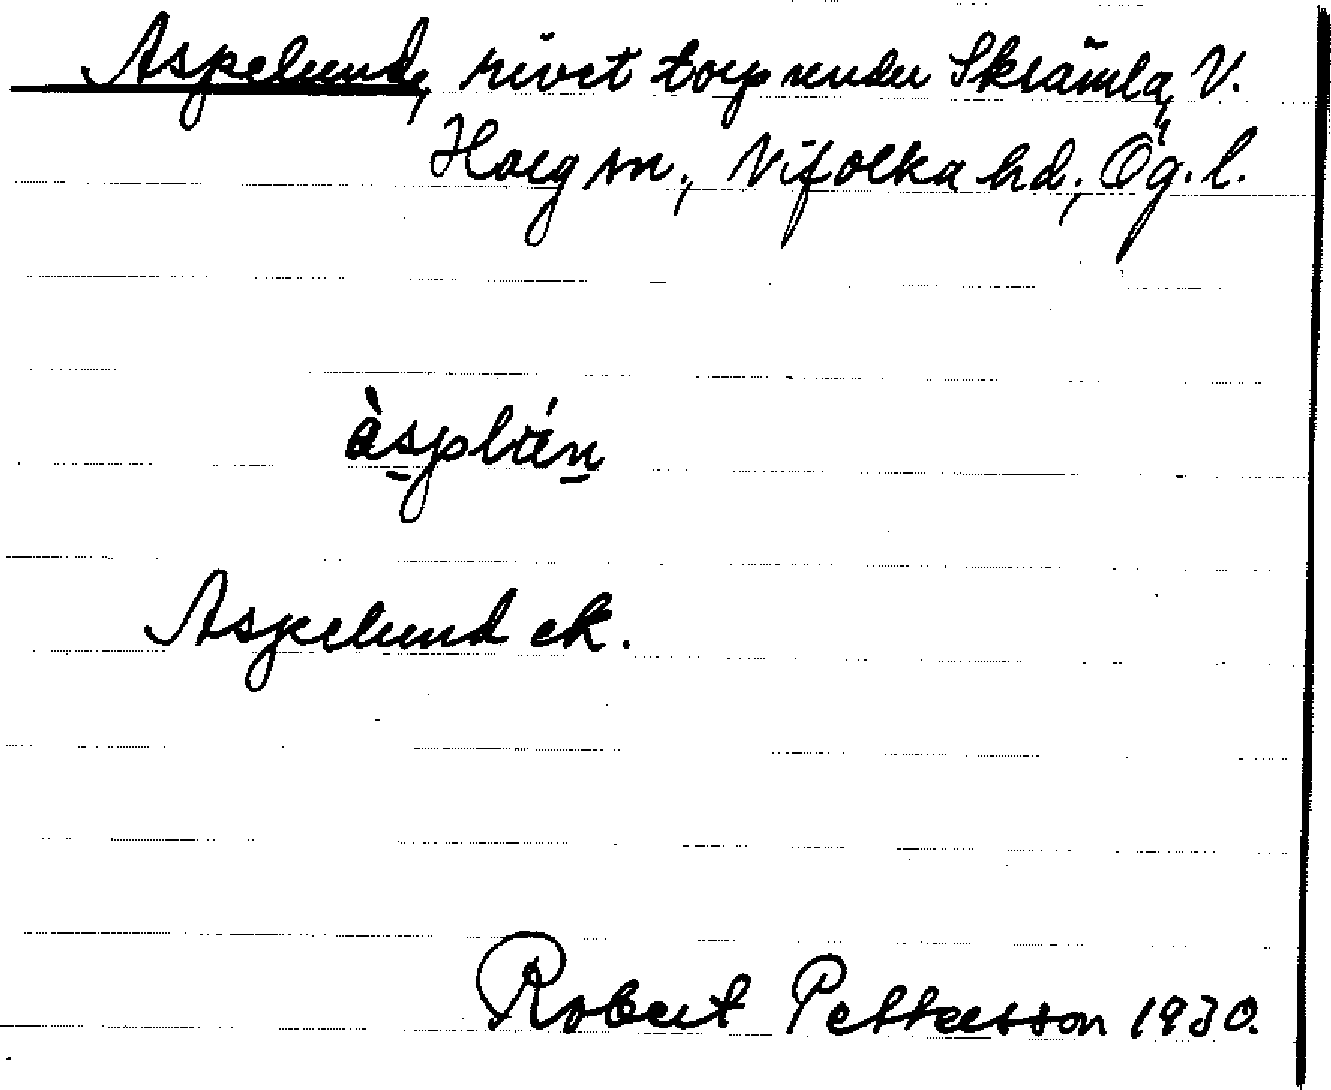 Aspelund, rivet torp under Skrämla, V.
Harg sn., Vifolka hd., Ög. l.
àsplún
Aspelund ek.
Robert Pettersson 1930.